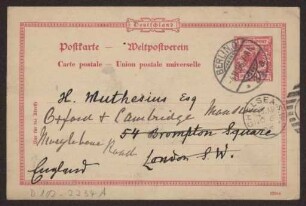 Deutschland
Postkarte — Weltpostverein
Carte postale — Union postale universelle
BERLIN
CHELSEA
H. Muthesius Esq
Oxford & Cambridge Mansions
54 Brompton Square
Marylebone Road
London S.W.
England
D 102-2237 A